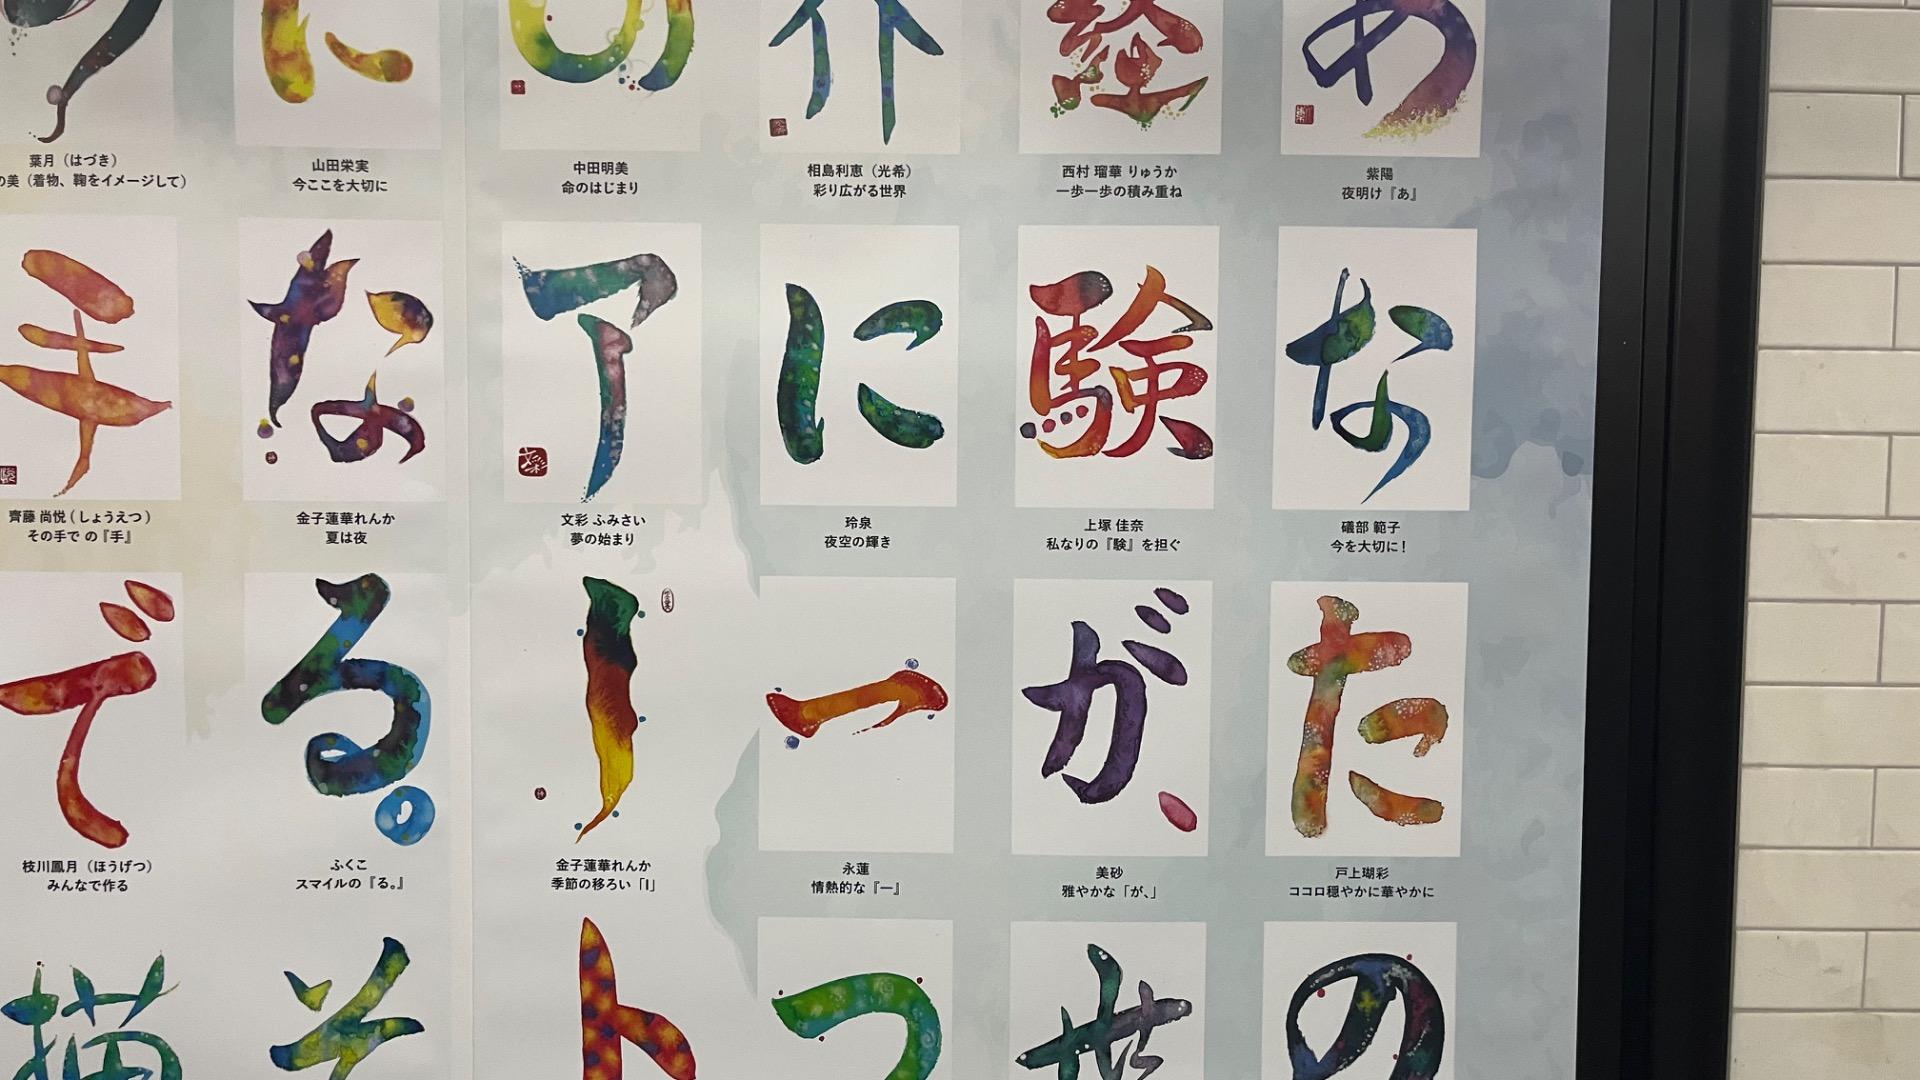 あ
紫陽
夜明け『あ』
な
礒部 範子
今を大切に！
た
戸上瑚彩
ココロ穏やかに華やかに
の
経
西村 瑠華 りゅうか
一歩一歩の積み重ね
験
上塚 佳奈
私なりの『験』を担ぐ
が、
美砂
雅やかな「が、」
世
界
相島利恵（光希）
彩り広がる世界
に
玲泉
夜空の輝き
一
永蓮
情熱的な『一』
つ
の
中田明美
命のはじまり
ア
文彩 ふみさい
夢の始まり
ー
金子蓮華れんか
季節の移ろい「ー」
ト
に
山田栄実
今ここを大切に
な
金子蓮華れんか
夏は夜
る。
ふくこ
スマイルの『る。』
そ
葉月（はづき）
の美（着物、鞠をイメージして）
手
齊藤 尚悦（しょうえつ）
その手で の『手』
で
枝川鳳月（ほうげつ）
みんなで作る
描